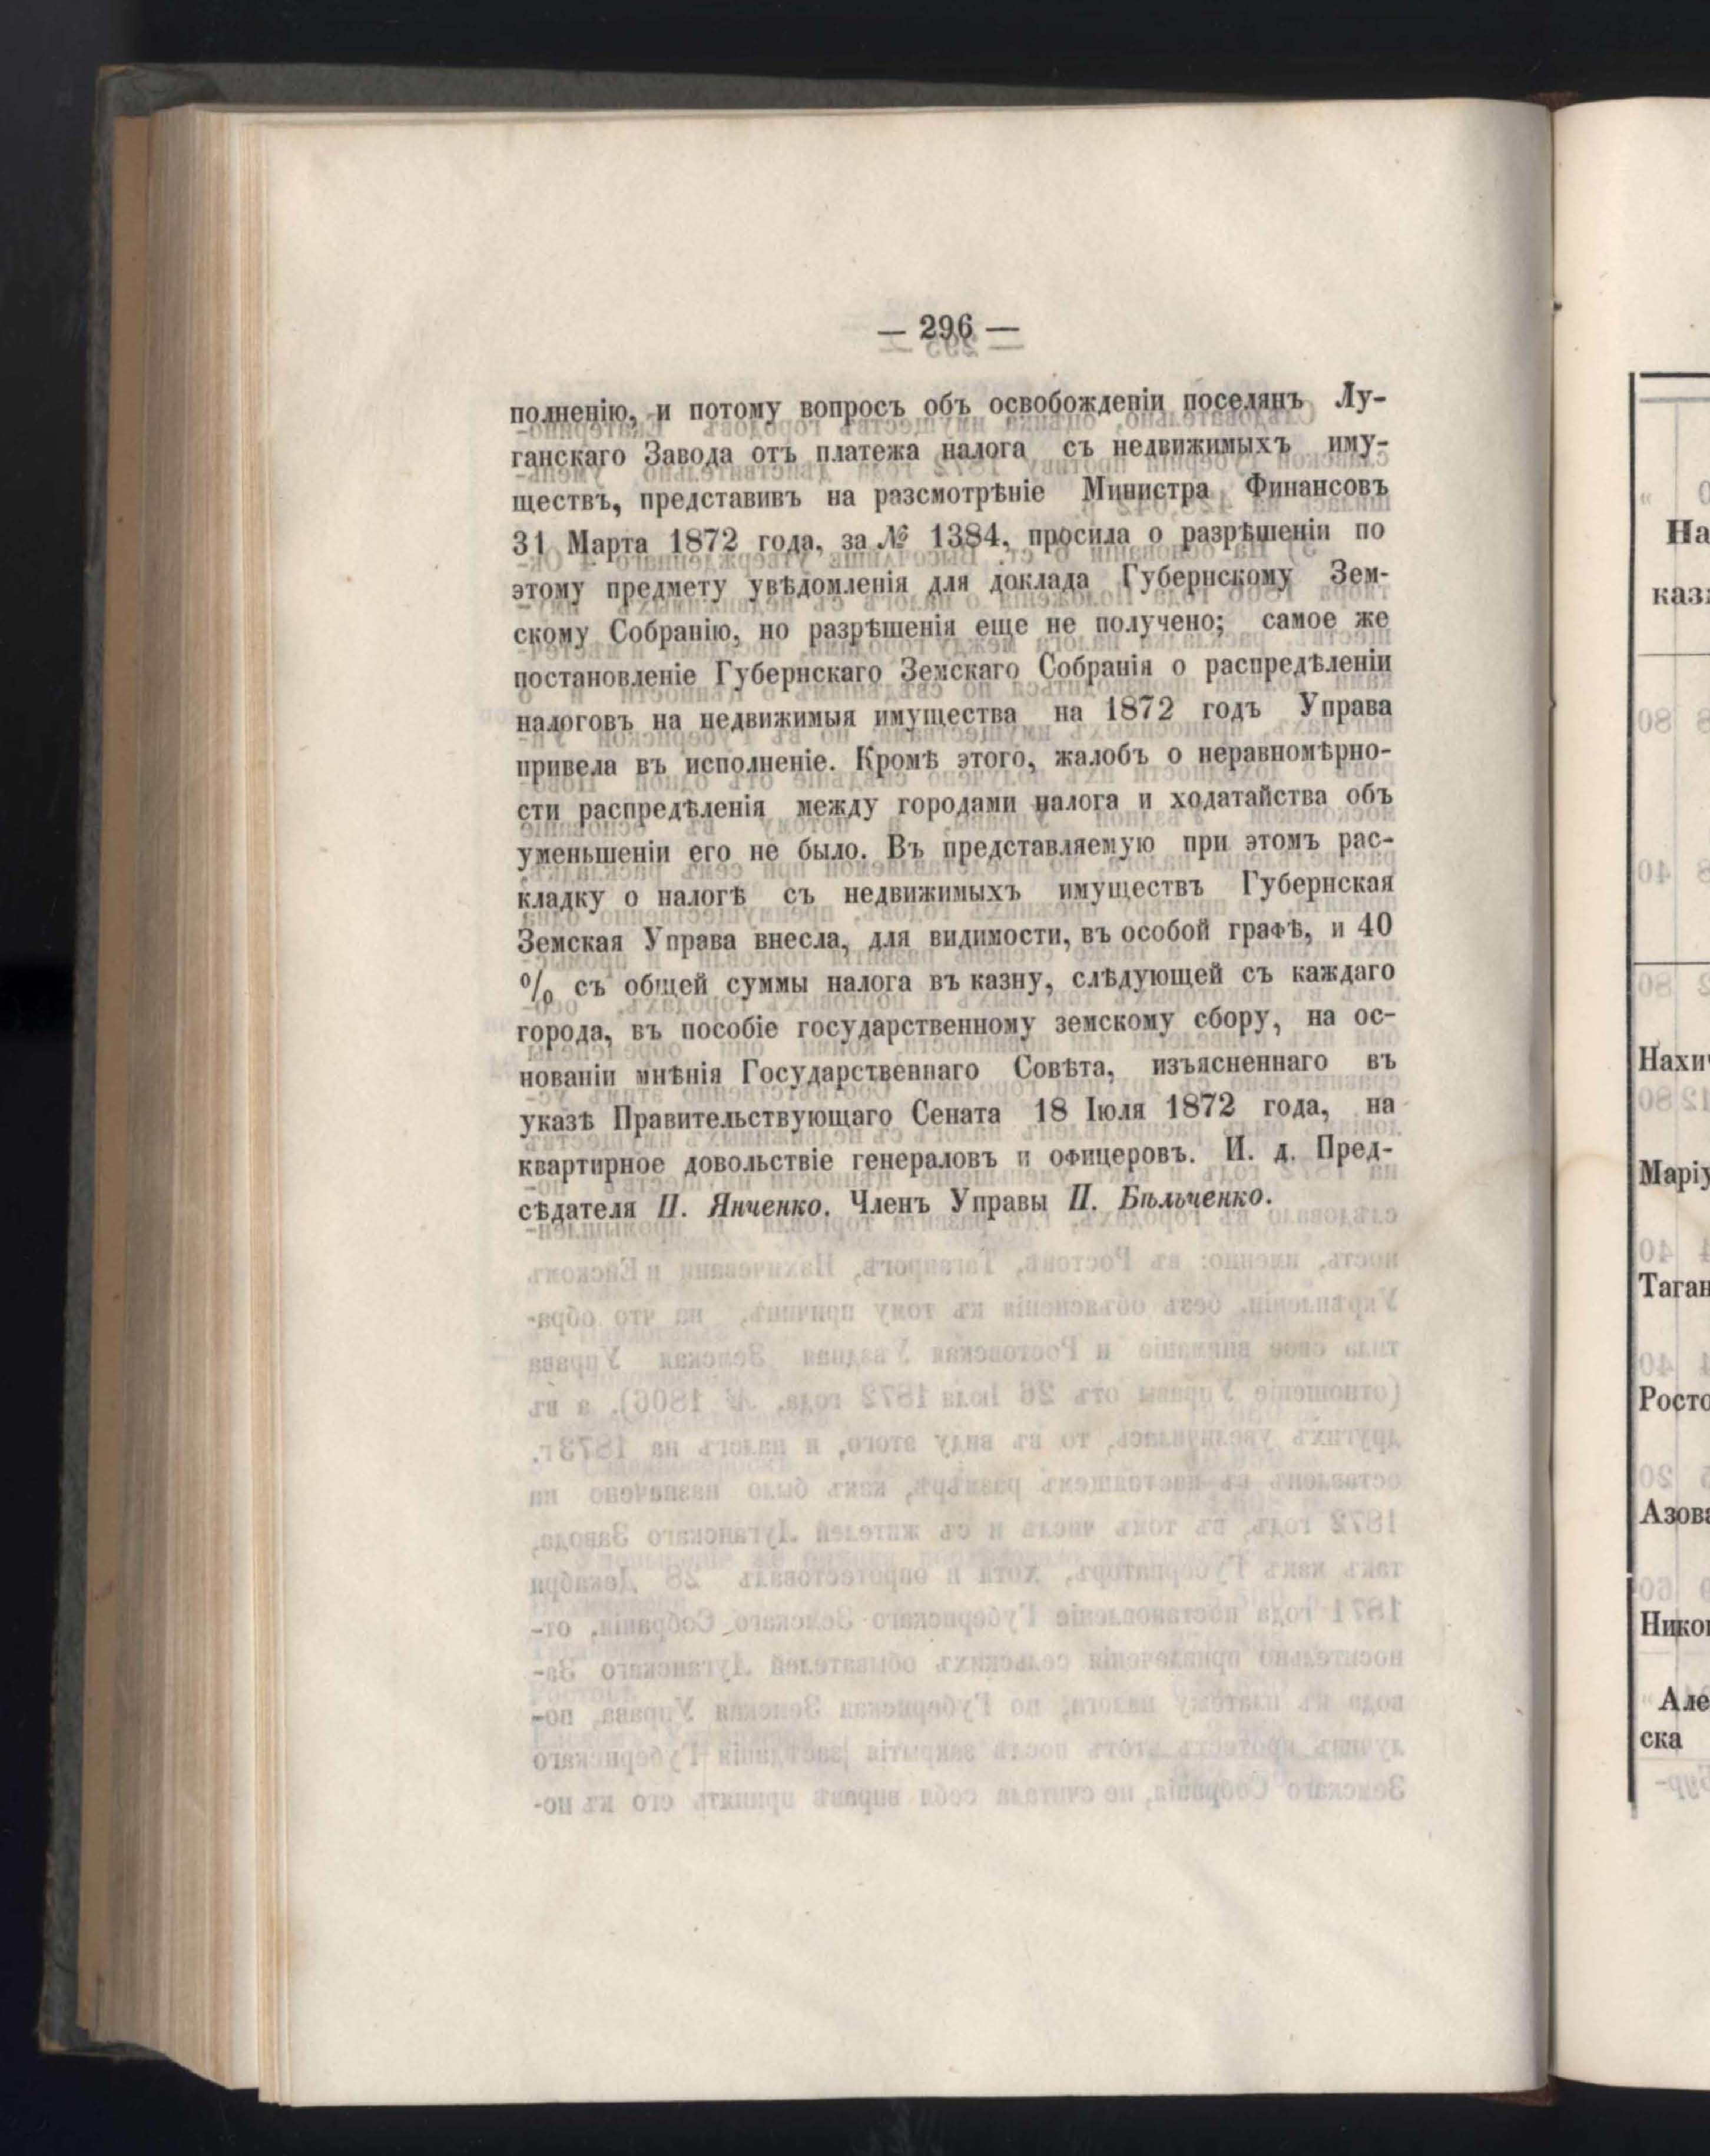 — 296 —
полненію, и потому вопросъ объ освобожденіи поселянъ Лу-
ганскаго Завода отъ платежа налога съ недвижимыхъ иму-
ществъ, представивъ на разсмотрѣніе Министра Финансовъ
31 Марта 1872 года, за № 1384, просила о разрѣшеніи по
этому предмету увѣдомленія для доклада Губернскому Зем-
скому Собранію, но разрѣшенія еще не получено; самое же
постановленіе Губернскаго Земскаго Собранія о распредѣленіи
налоговъ на недвижимыя имущества на 1872 годъ Управа
привела въ исполненіе. Кромѣ этого, жалобъ о неравномѣрно-
сти распредѣленія между городами налога и ходатайства объ
уменьшеніи его не было. Въ представляемую при этомъ рас-
кладку о налогѣ съ недвижимыхъ имуществъ Губернская
Земская Управа внесла, для видимости, въ особой графѣ, и 40
% съ общей суммы налога въ казну, слѣдующей съ каждаго
города, въ пособіе государственному земскому сбору, на ос-
нованіи мнѣнія Государственнаго Совѣта, изъясненнаго въ
указѣ Правительствующаго Сената 18 Іюля 1872 года, на
квартирное довольствіе генераловъ и офицеровъ. И. д. Пред-
сѣдателя П. Янченко. Членъ Управы П. Бѣльченко.
На
каз
Нахич
Маріу
Таган
Росто
Азова
Нико
Але
ска